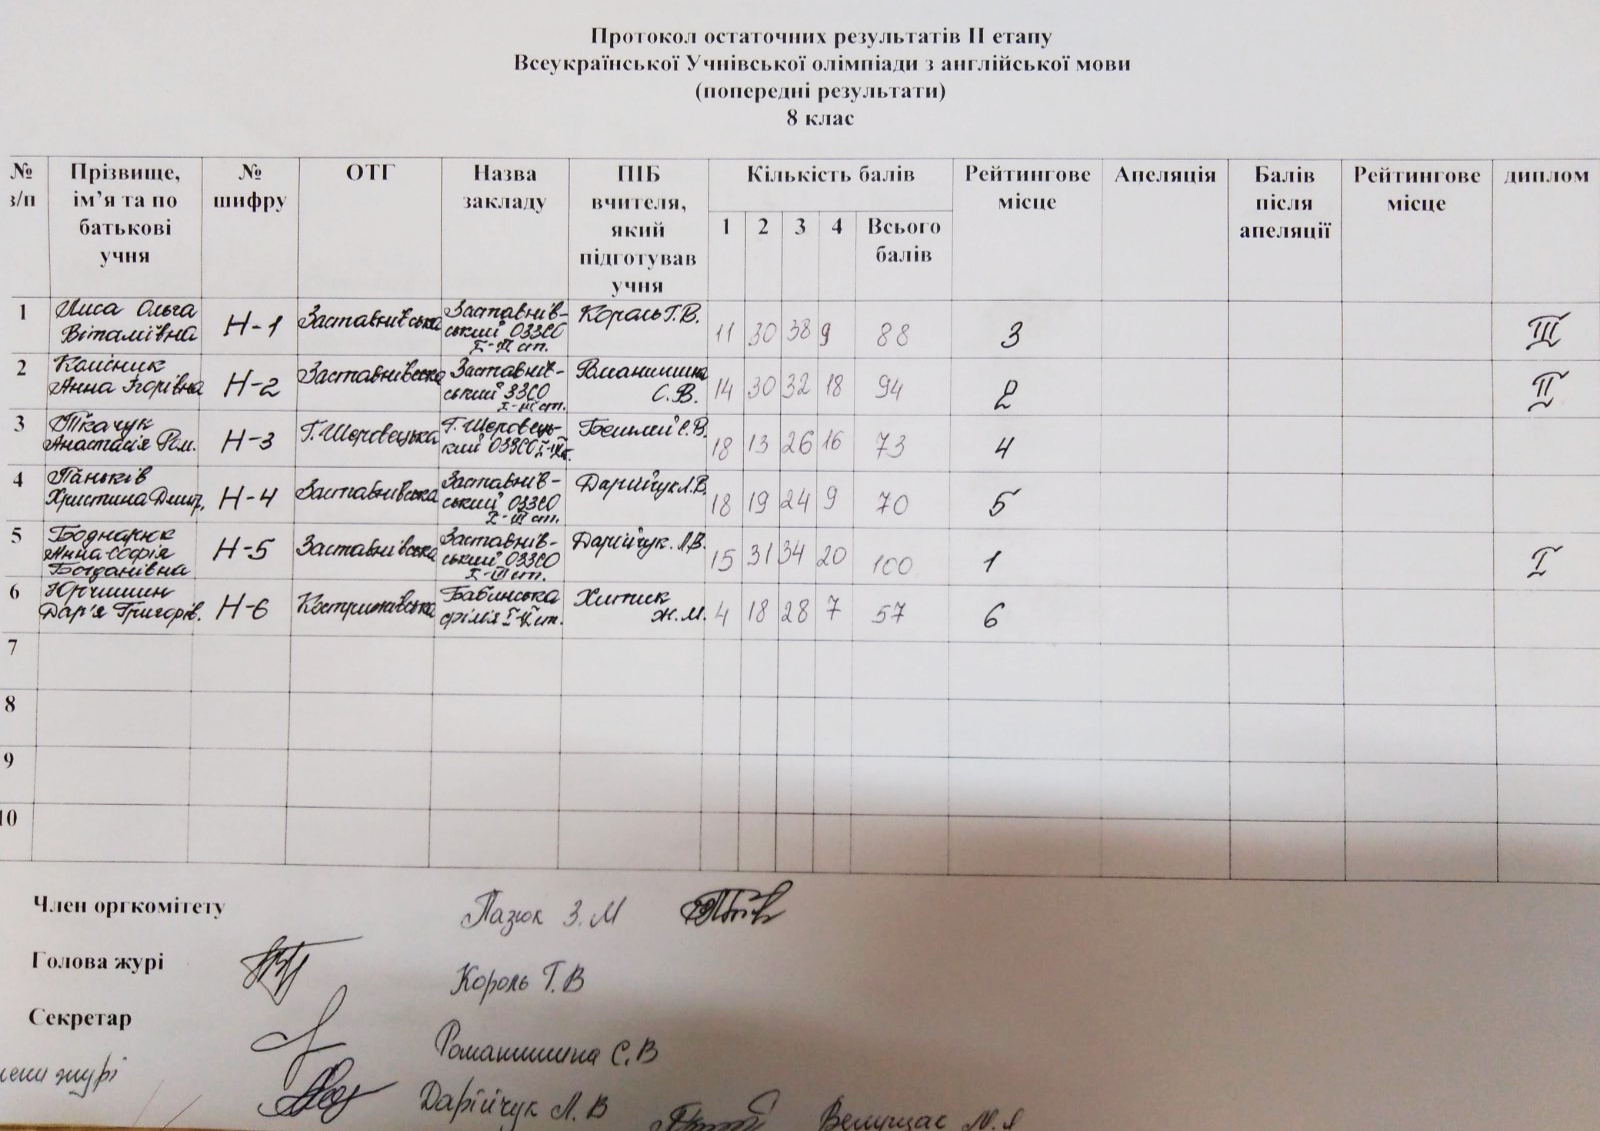 Протокол остаточних результатів ІІ етапу
Всеукраїнської Учнівської олімпіади з англійської мови
(попередні результати)
8 клас
№ з/п Прізвище, ім'я та по батькові учня № шифру ОТГ Назва закладу ПІБ вчителя, який підготував учня Кількість балів Рейтингове місце Апеляція Балів після апеляції Рейтингове місце диплом
1 2 3 4 Всього балів
1 Лиса Ольга Віталіївна Н-1 Заставнівська Заставнівський ОЗЗСО І-ІІІ ст. Король Т.В. 11 30 38 9 88 3 ІІІ
2 Колісник Анна Ігорівна Н-2 Заставнівська Заставнівський ЗЗСО І-ІІІ ст. Романишина С.В. 14 30 32 18 94 2 ІІ
3 Ткачук Анастасія Ром. Н-3 Г. Шеровецька Г. Шеровецький ОЗЗСО С.В. 18 13 26 16 73 4
4 Паньків Христина Дмитр. Н-4 Заставнівська Заставнівський ОЗЗСО І-ІІІ ст. Дарійчук Л.В. 18 19 24 9 70 5
5 Боднарюк Анна-Софія Богданівна Н-5 Заставнівська Заставнівський ОЗЗСО І-ІІІ ст. Дарійчук Л.В. 15 31 34 20 100 1 І
6 Юрчишин Дар'я Григорів. Н-6 Кострижівська Бабинська філія ст. Ж.М. 4 18 28 7 57 6
7
8
9
10
Член оргкомітету Пазюк З.М
Голова журі Король Т.В
Секретар Романишина С.В
журі Дарійчук Л.В